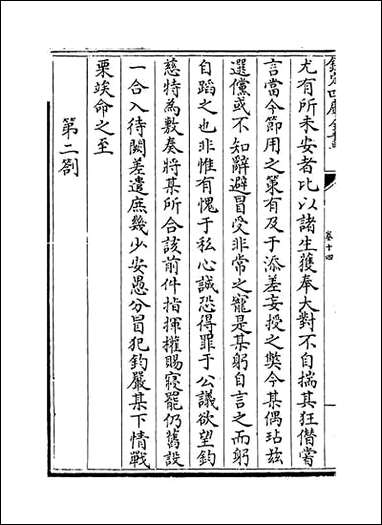 欽定四庫全書
卷十四
尤有所未安者比以諸生獲奉大對不自揣其狂僭嘗
言當今節用之策有及于添差妄授之弊今某偶玷玆
選儻或不知辭避冒受非常之寵是某躬自言之而躬
自蹈之也非惟有愧于私心誠恐得罪于公議欲望鈞
慈特為敷奏將某所合該前件指揮權賜寢罷仍舊設
一合入待闕差遣庶幾少安愚分冒犯鈞嚴某下情戰
栗竢命之至
第二劄